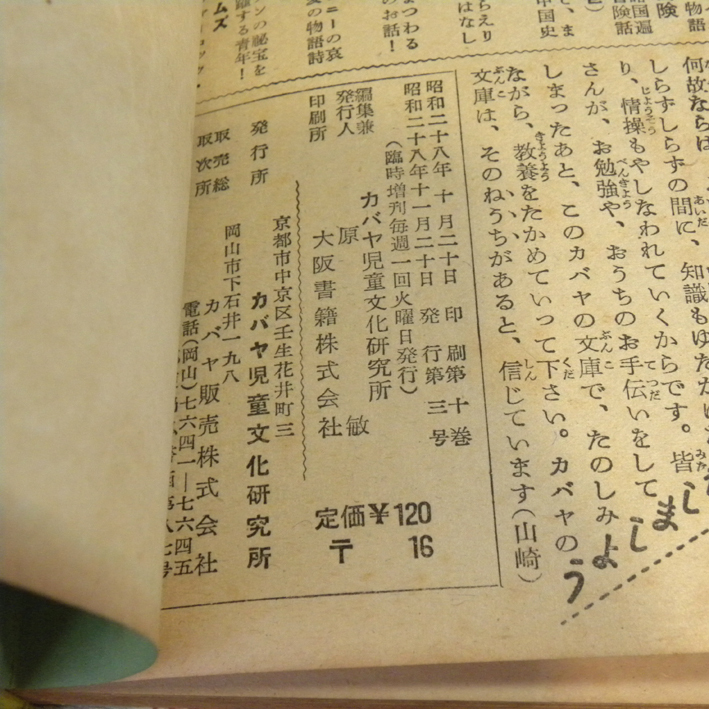 何故ならば
しらずしらずの間に、知識もゆたか
り、情操もやしなわれていくからです。皆
さんが、お勉強や、おうちのお手伝いをして
しまったあと、このカバヤの文庫で、たのしみ
ながら、教養をたかめていって下さい。カバヤの
文庫は、そのねうちがあると、信じています(山崎)
ましょう
昭和二十八年 十月二十日 印刷第十巻
昭和二十八年十一月二十日 発行第三号
(臨時増刊毎週一回火曜日発行)
編集兼発行人 カバヤ児童文化研究所 原 敏
印刷所 大阪書籍株式会社
京都市中京区壬生花井町三
発行所 カバヤ児童文化研究所
岡山市下石井一九八
取売総取次所 カバヤ販売株式会社
電話(岡山)七六四一―七六四五
定価¥120
〒 16
険
諸国遍
冒険話
中国史
らえり
はなし
まつわる
のお話!
ニーの哀
の物語詩
ンの秘宝を
する青年!
ムズ